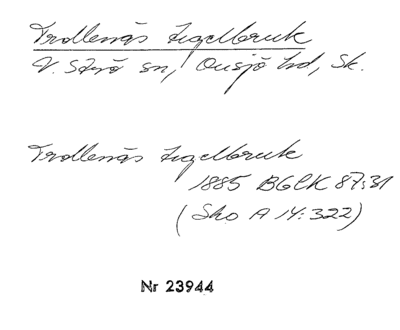 Trollenäs tegelbruk
V. Strö sn, Onsjö hd, Sk.
Trollenäs tegelbruk
1885 BGLK 87:31
(Sko A 14:322)
Nr 23944